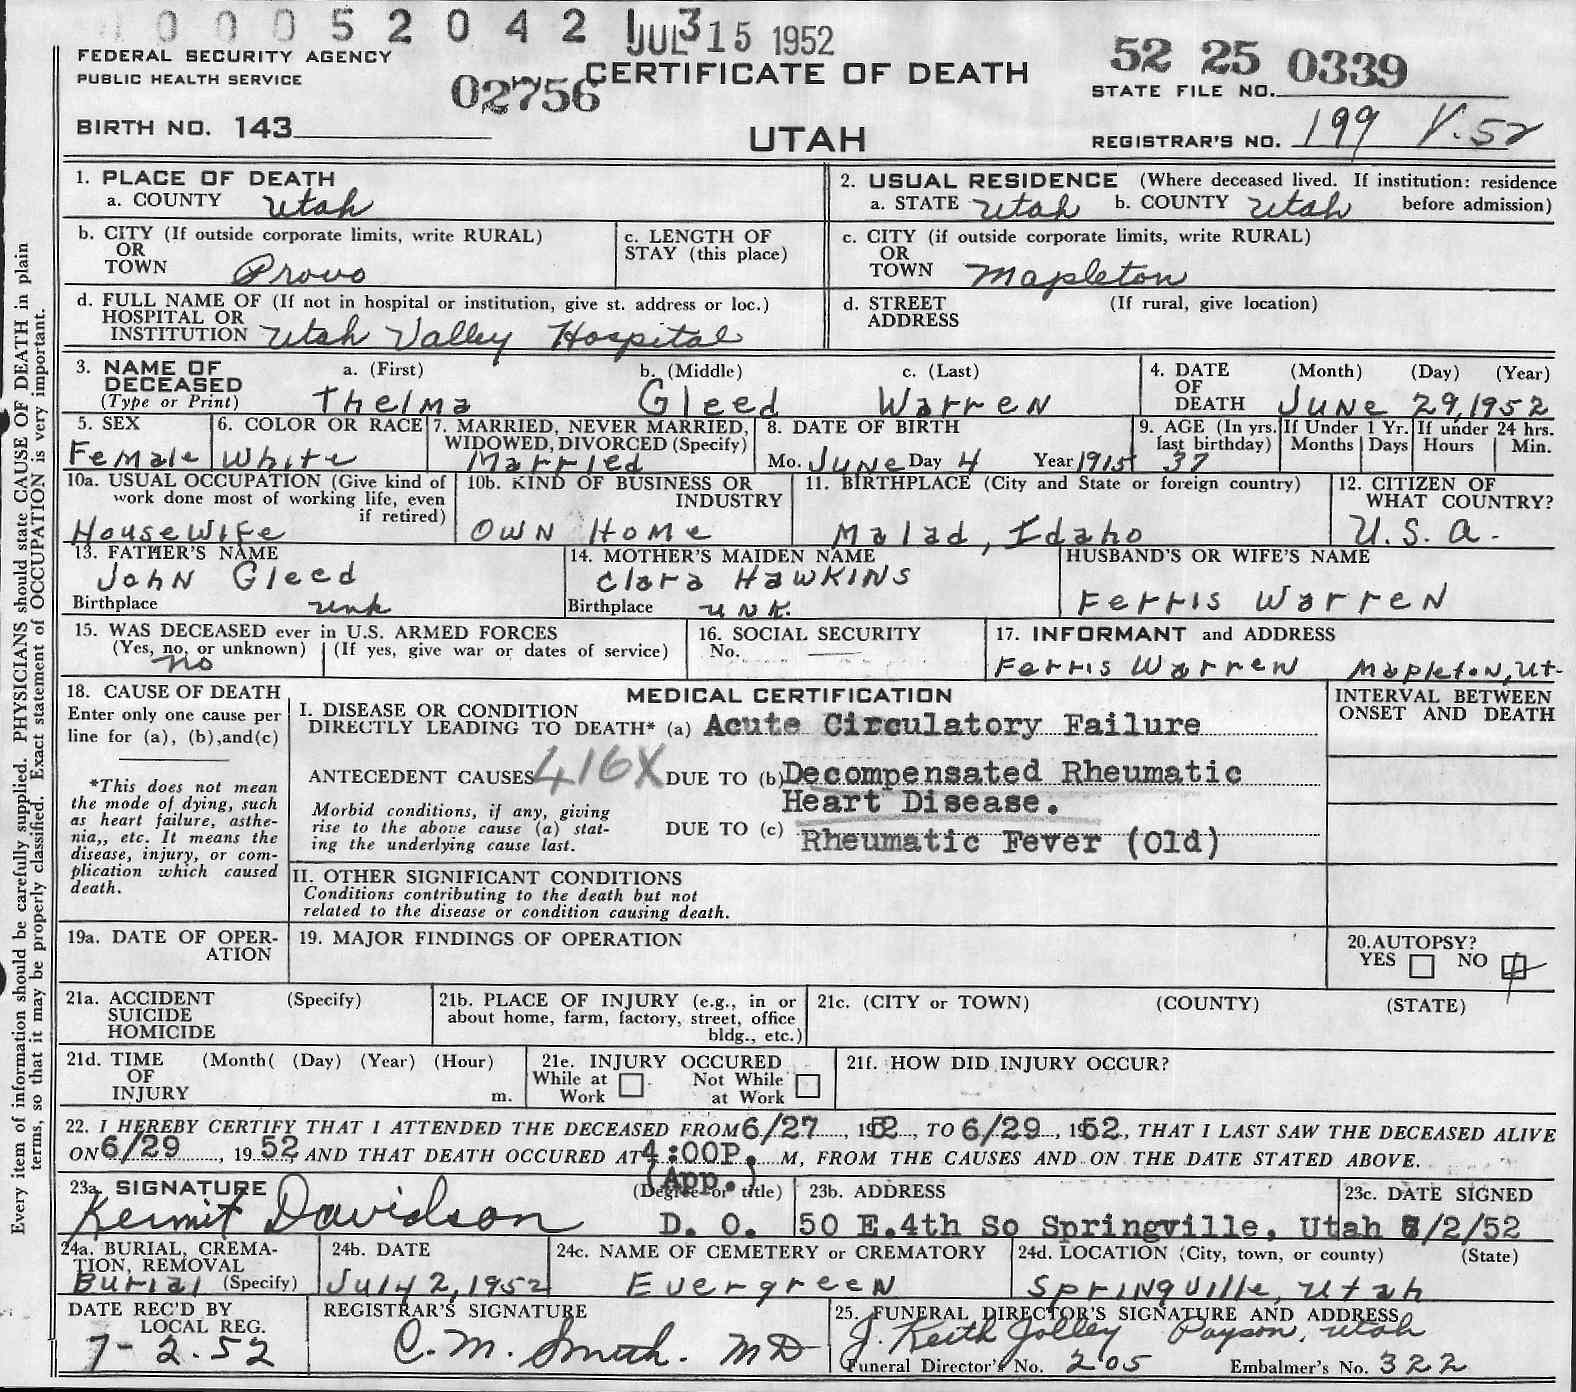 00052042 JUL 3 15 1952
FEDERAL SECURITY AGENCY
PUBLIC HEALTH SERVICE
02756
CERTIFICATE OF DEATH
52 25 0339
STATE FILE NO.
BIRTH NO. 143
UTAH
REGISTRAR'S NO. 199 V.52
Every item of information should be carefully supplied. PHYSICIANS should state CAUSE OF DEATH in plain
terms, so that it may be properly classified. Exact statement of OCCUPATION is very important.
1. PLACE OF DEATH
a. COUNTY Utah
2. USUAL RESIDENCE (Where deceased lived. If institution: residence
before admission)
a. STATE Utah b. COUNTY Utah
b. CITY (If outside corporate limits, write RURAL)
OR
TOWN Provo
c. LENGTH OF
STAY (this place)
c. CITY (if outside corporate limits, write RURAL)
OR
TOWN Mapleton
d. FULL NAME OF (If not in hospital or institution, give st. address or loc.)
HOSPITAL OR
INSTITUTION Utah Valley Hospital
d. STREET (If rural, give location)
ADDRESS
3. NAME OF
DECEASED
(Type or Print)
a. (First) b. (Middle) c. (Last)
Thelma Gleed Warren
4. DATE (Month) (Day) (Year)
OF
DEATH June 29, 1952
5. SEX
Female
6. COLOR OR RACE
White
7. MARRIED, NEVER MARRIED,
WIDOWED, DIVORCED (Specify)
Married
8. DATE OF BIRTH
Mo. June Day 4 Year 1915
9. AGE (In yrs.
last birthday)
37
If Under 1 Yr.
Months Days
If under 24 hrs.
Hours Min.
10a. USUAL OCCUPATION (Give kind of
work done most of working life, even
if retired)
Housewife
10b. KIND OF BUSINESS OR
INDUSTRY
Own Home
11. BIRTHPLACE (City and State or foreign country)
Malad, Idaho
12. CITIZEN OF
WHAT COUNTRY?
U.S.A.
13. FATHER'S NAME
John Gleed
Birthplace unk
14. MOTHER'S MAIDEN NAME
Clara Hawkins
Birthplace unk.
HUSBAND'S OR WIFE'S NAME
Ferris Warren
15. WAS DECEASED ever in U.S. ARMED FORCES
(Yes, no, or unknown) (If yes, give war or dates of service)
no
16. SOCIAL SECURITY
No.
17. INFORMANT and ADDRESS
Ferris Warren Mapleton, Ut-
18. CAUSE OF DEATH
Enter only one cause per
line for (a), (b),and(c)
*This does not mean
the mode of dying, such
as heart failure, asthe-
nia,, etc. It means the
disease, injury, or com-
plication which caused
death.
MEDICAL CERTIFICATION
I. DISEASE OR CONDITION
DIRECTLY LEADING TO DEATH* (a) Acute Circulatory Failure
ANTECEDENT CAUSES 416X DUE TO (b) Decompensated Rheumatic
Heart Disease.
Morbid conditions, if any, giving
rise to the above cause (a) stat-
ing the underlying cause last.
DUE TO (c) Rheumatic Fever (Old)
INTERVAL BETWEEN
ONSET AND DEATH
II. OTHER SIGNIFICANT CONDITIONS
Conditions contributing to the death but not
related to the disease or condition causing death.
19a. DATE OF OPER-
ATION
19. MAJOR FINDINGS OF OPERATION
20. AUTOPSY?
YES NO
21a. ACCIDENT (Specify)
SUICIDE
HOMICIDE
21b. PLACE OF INJURY (e.g., in or
about home, farm, factory, street, office
bldg., etc.)
21c. (CITY or TOWN) (COUNTY) (STATE)
21d. TIME (Month( (Day) (Year) (Hour)
OF
INJURY m.
21e. INJURY OCCURED
While at Not While
Work at Work
21f. HOW DID INJURY OCCUR?
22. I HEREBY CERTIFY THAT I ATTENDED THE DECEASED FROM 6/27, 1952, TO 6/29, 1952, THAT I LAST SAW THE DECEASED ALIVE
ON 6/29, 1952, AND THAT DEATH OCCURED AT 4:00P. M, FROM THE CAUSES AND ON THE DATE STATED ABOVE.
(App.)
23a. SIGNATURE (Degree or title)
Kermit Davidson D. O.
23b. ADDRESS
50 E.4th So Springville, Utah
23c. DATE SIGNED
7/2/52
24a. BURIAL, CREMA-
TION, REMOVAL
Burial (Specify)
24b. DATE
July 2, 1952
24c. NAME OF CEMETERY or CREMATORY
Evergreen
24d. LOCATION (City, town, or county) (State)
Springville, Utah
DATE REC'D BY
LOCAL REG.
7-2-52
REGISTRAR'S SIGNATURE
C. M. Smith. MD
25. FUNERAL DIRECTOR'S SIGNATURE AND ADDRESS
J. Keith Jolley Payson, Utah
Funeral Director's No. 205 Embalmer's No. 322